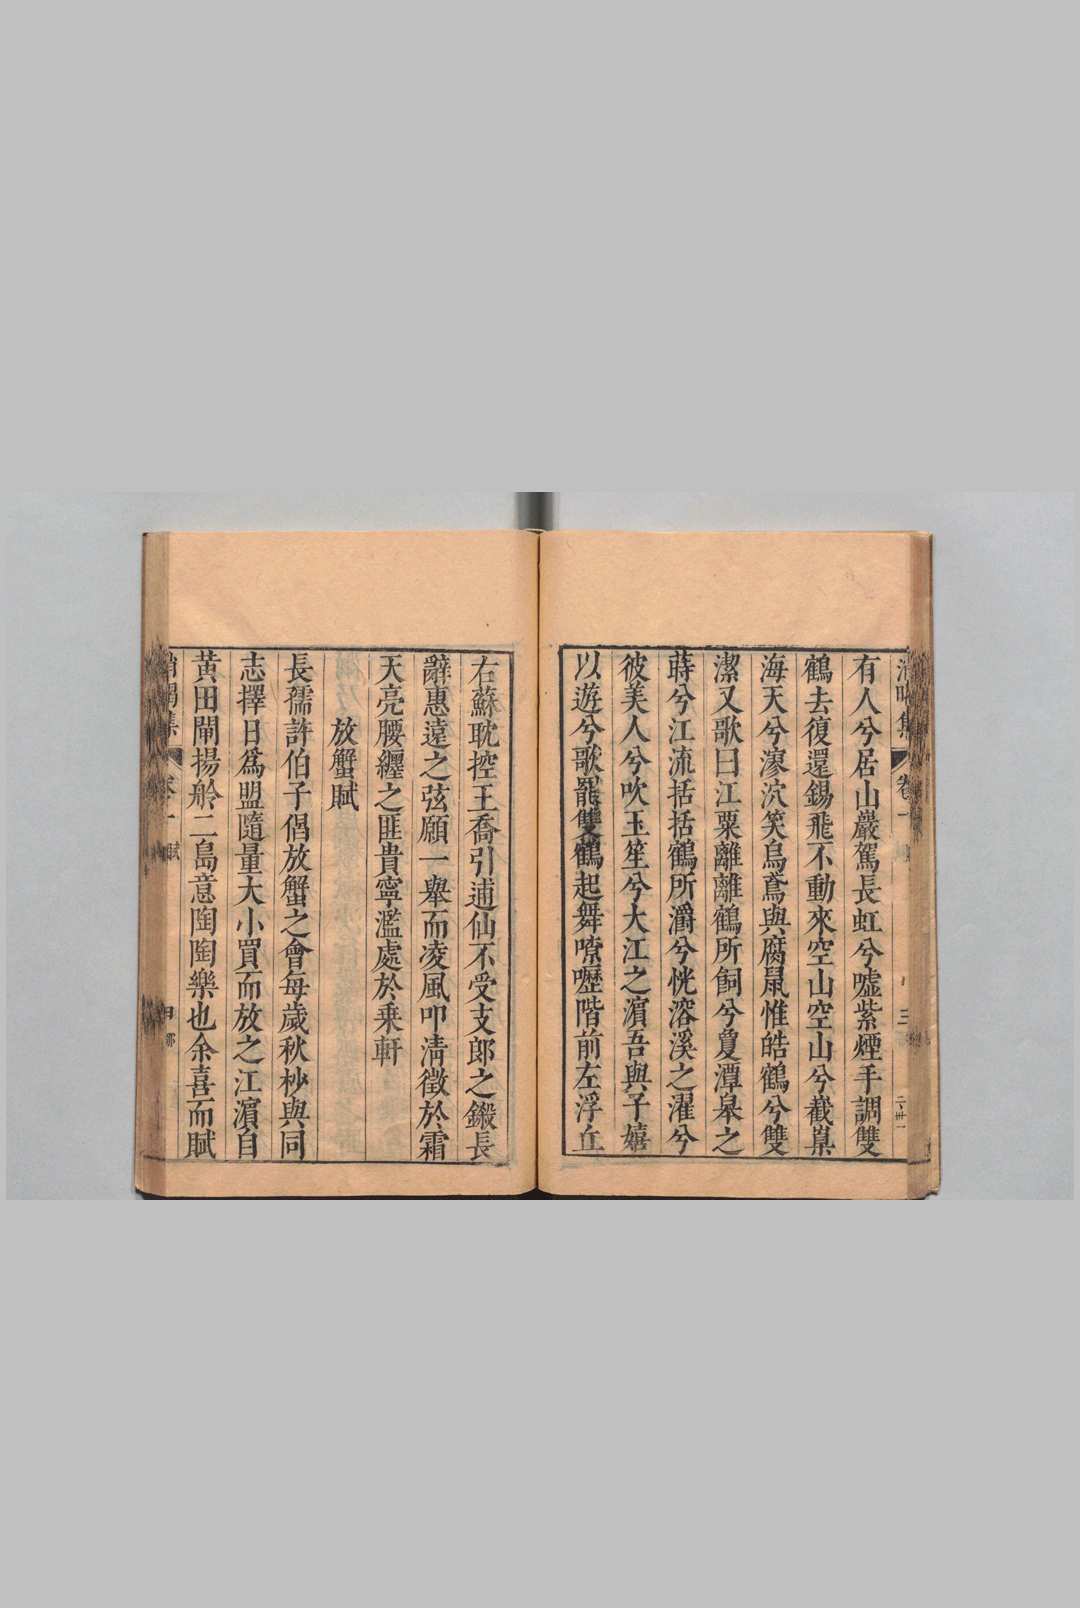 有人兮居山巖駕長虹兮噓紫煙手調雙
鶴去復還錫飛不動來空山空山兮巀嵲
海天兮漻泬笑烏鳶與腐鼠惟皓鶴兮雙
潔又歌曰江粟離離鶴所飼兮敻潭皋之
蒔兮江流括括鶴所灂兮恍溶溪之濯兮
彼美人兮吹玉笙兮大江之濵吾與子嬉
以遊兮歌罷雙鶴起舞嘹嚦階前左浮丘
右蘇耽控王喬引逋仙不受支郎之鎩長
辭惠遠之弦願一舉而凌風叩淸徵於霜
天亮腰纏之匪貴寧濫處於乗軒
放蟹賦
長孺許伯子倡放蟹之會每歲秋杪與同
志擇日爲盟隨量大小買而放之江濵自
黃田閘揚舲二島意陶陶樂也余喜而賦